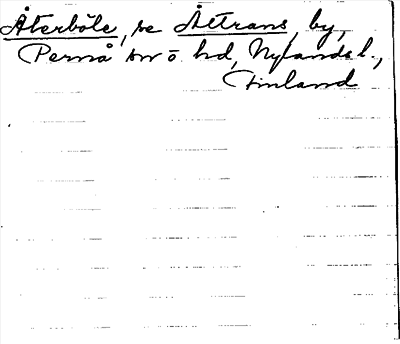 Återböle, se Åetrans, by,
Pernå sn ö. hd, Nylands l.,
Finland